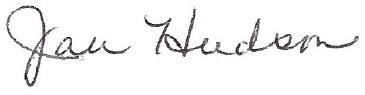 Jan Hudson